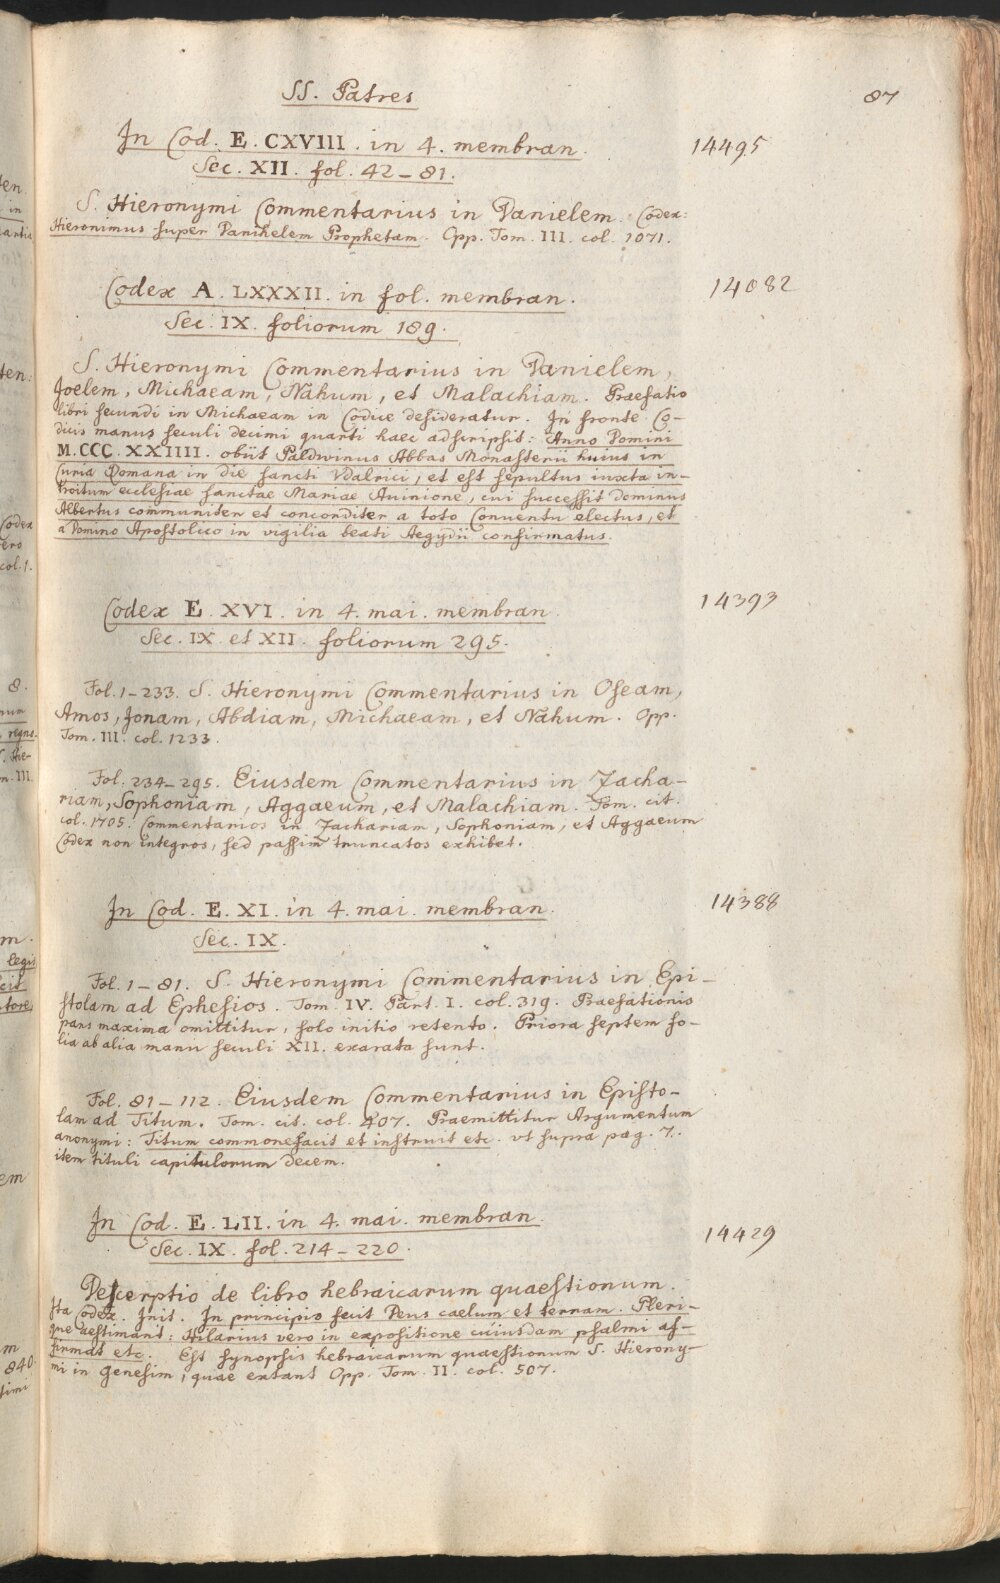 SS. Patres
87
In Cod. E. CXVIII. in 4. membran.
14495
Sec. XII. fol. 42–81.
S. Hieronymi Commentarius in Danielem. Codex:
Hieronimus super Danihelem Prophetam. Opp. Tom. III. col. 1071.
Codex A. LXXXII. in fol. membran.
14082
Sec. IX. foliorum 189.
S. Hieronymi Commentarius in Danielem,
Joelem, Michaeam, Nahum, et Malachiam. Praefatio
libri secundi in Michaeam in Codice desideratur. In fronte Co-
dicis manus seculi decimi quarti haec adscripsit: Anno Domini
M.CCC.XXIIII. obiit Baldwinus Abbas Monasterii huius in
Curia Romana in die sancti Vdalrici, et est sepultus iuxta in-
troitum ecclesiae sanctae Mariae Auinione, cui successit dominus
Albertus communiter et concorditer a toto Conuentu electus, et
a Domino Apostolico in vigilia beati Aegydii confirmatus.
Codex E. XVI. in 4. mai. membran.
14393
Sec. IX. et XII. foliorum 295.
Fol. 1–233. S. Hieronymi Commentarius in Oseam,
Amos, Jonam, Abdiam, Michaeam, et Nahum. Opp.
Tom. III. col. 1233.
Fol. 234–295. Eiusdem Commentarius in Zacha-
riam, Sophoniam, Aggaeum, et Malachiam. Tom. cit.
col. 1705. Commentarios in Zachariam, Sophoniam, et Aggaeum
Codex non integros, sed passim truncatos exhibet.
In Cod. E. XI. in 4. mai. membran.
14388
Sec. IX.
Fol. 1–81. S. Hieronymi Commentarius in Epi-
stolam ad Ephesios. Tom. IV. Part. I. col. 319. Praefationis
pars maxima omittitur, solo initio retento. Priora septem fo-
lia ab alia manu seculi XII. exarata sunt.
Fol. 81–112. Eiusdem Commentarius in Episto-
lam ad Titum. Tom. cit. col. 407. Praemittitur Argumentum
anonymi: Titum commonefacit et instruit etc. vt supra pag. 7.
item tituli capitulorum decem.
In Cod. E. LII. in 4. mai. membran.
14429
Sec. IX. fol. 214–220.
Descerptio de libro hebraicarum quaestionum.
Ita Codex. Init. In principio fecit Deus caelum et terram. Pleri-
que aestimant: Hilarius vero in expositione cuiusdam psalmi af-
firmat etc. Est synopsis hebraicarum quaestionum S. Hierony-
mi in Genesim, quae extant Opp. Tom. II. col. 507.